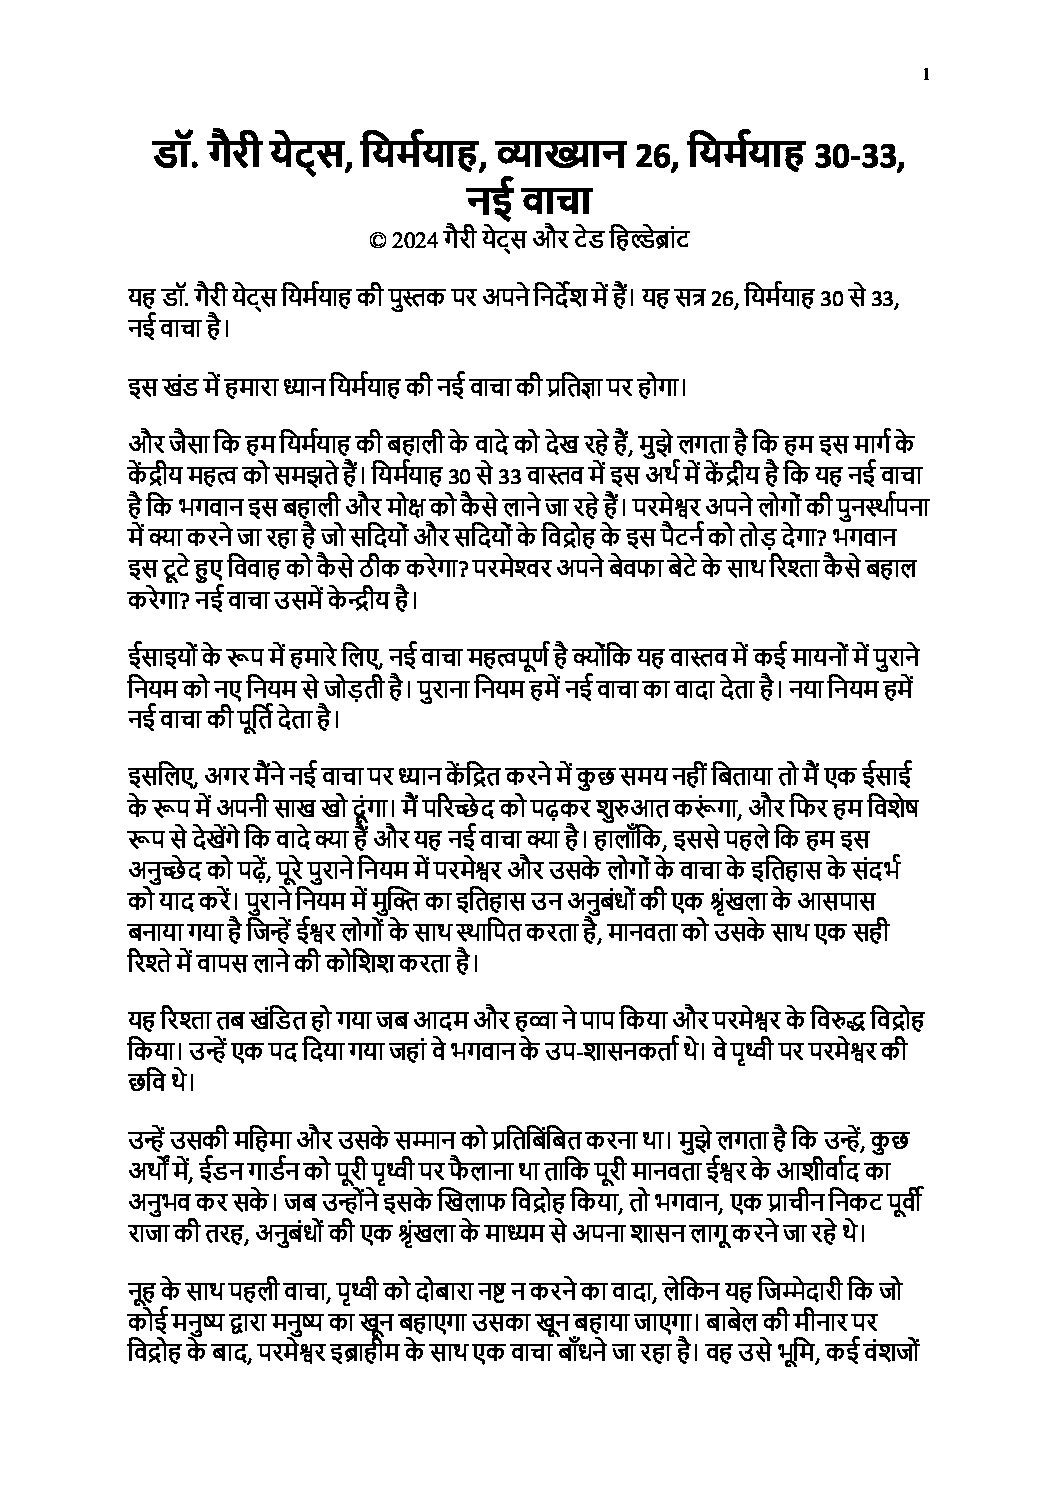 1
डॉ. गैरी येट्स, यिर्मयाह, व्याख्यान 26, यिर्मयाह 30-33,
नई वाचा
© 2024 गैरी येट्स और टेड हिल्डेब्रांट
यह डॉ. गैरी येट्स यिर्मयाह की पुस्तक पर अपने निर्देश में हैं। यह सत्र 26, यिर्मयाह 30 से 33,
नई वाचा है।
इस खंड में हमारा ध्यान यिर्मयाह की नई वाचा की प्रतिज्ञा पर होगा।
और जैसा कि हम यिर्मयाह की बहाली के वादे को देख रहे हैं, मुझे लगता है कि हम इस मार्ग के
केंद्रीय महत्व को समझते हैं। यिर्मयाह 30 से 33 वास्तव में इस अर्थ में केंद्रीय है कि यह नई वाचा
है कि भगवान इस बहाली और मोक्ष को कैसे लाने जा रहे हैं। परमेश्वर अपने लोगों की पुनर्स्थापना
में क्या करने जा रहा है जो सदियों और सदियों के विद्रोह के इस पैटर्न को तोड़ देगा? भगवान
इस टूटे हुए विवाह को कैसे ठीक करेगा? परमेश्‍वर अपने बेवफा बेटे के साथ रिश्ता कैसे बहाल
करेगा? नई वाचा उसमें केन्द्रीय है।
ईसाइयों के रूप में हमारे लिए, नई वाचा महत्वपूर्ण है क्योंकि यह वास्तव में कई मायनों में पुराने
नियम को नए नियम से जोड़ती है। पुराना नियम हमें नई वाचा का वादा देता है। नया नियम हमें
नई वाचा की पूर्ति देता है।
इसलिए, अगर मैंने नई वाचा पर ध्यान केंद्रित करने में कुछ समय नहीं बिताया तो मैं एक ईसाई
के रूप में अपनी साख खो दूंगा। मैं परिच्छेद को पढ़कर शुरुआत करूंगा, और फिर हम विशेष
रूप से देखेंगे कि वादे क्या हैं और यह नई वाचा क्या है। हालाँकि, इससे पहले कि हम इस
अनुच्छेद को पढ़ें, पूरे पुराने नियम में परमेश्वर और उसके लोगों के वाचा के इतिहास के संदर्भ
को याद करें। पुराने नियम में मुक्ति का इतिहास उन अनुबंधों की एक श्रृंखला के आसपास
बनाया गया है जिन्हें ईश्वर लोगों के साथ स्थापित करता है, मानवता को उसके साथ एक सही
रिश्ते में वापस लाने की कोशिश करता है।
यह रिश्ता तब खंडित हो गया जब आदम और हव्वा ने पाप किया और परमेश्वर के विरुद्ध विद्रोह
किया। उन्हें एक पद दिया गया जहां वे भगवान के उप-शासनकर्ता थे। वे पृथ्वी पर परमेश्वर की
छवि थे।
उन्हें उसकी महिमा और उसके सम्मान को प्रतिबिंबित करना था। मुझे लगता है कि उन्हें, कुछ
अर्थों में, ईडन गार्डन को पूरी पृथ्वी पर फैलाना था ताकि पूरी मानवता ईश्वर के आशीर्वाद का
अनुभव कर सके। जब उन्होंने इसके खिलाफ विद्रोह किया, तो भगवान, एक प्राचीन निकट पूर्वी
राजा की तरह, अनुबंधों की एक श्रृंखला के माध्यम से अपना शासन लागू करने जा रहे थे।
नूह के साथ पहली वाचा, पृथ्वी को दोबारा नष्ट न करने का वादा, लेकिन यह जिम्मेदारी कि जो
कोई मनुष्य द्वारा मनुष्य का खून बहाएगा उसका खून बहाया जाएगा। बाबेल की मीनार पर
विद्रोह के बाद, परमेश्वर इब्राहीम के साथ एक वाचा बाँधने जा रहा है। वह उसे भूमि, कई वंशजों